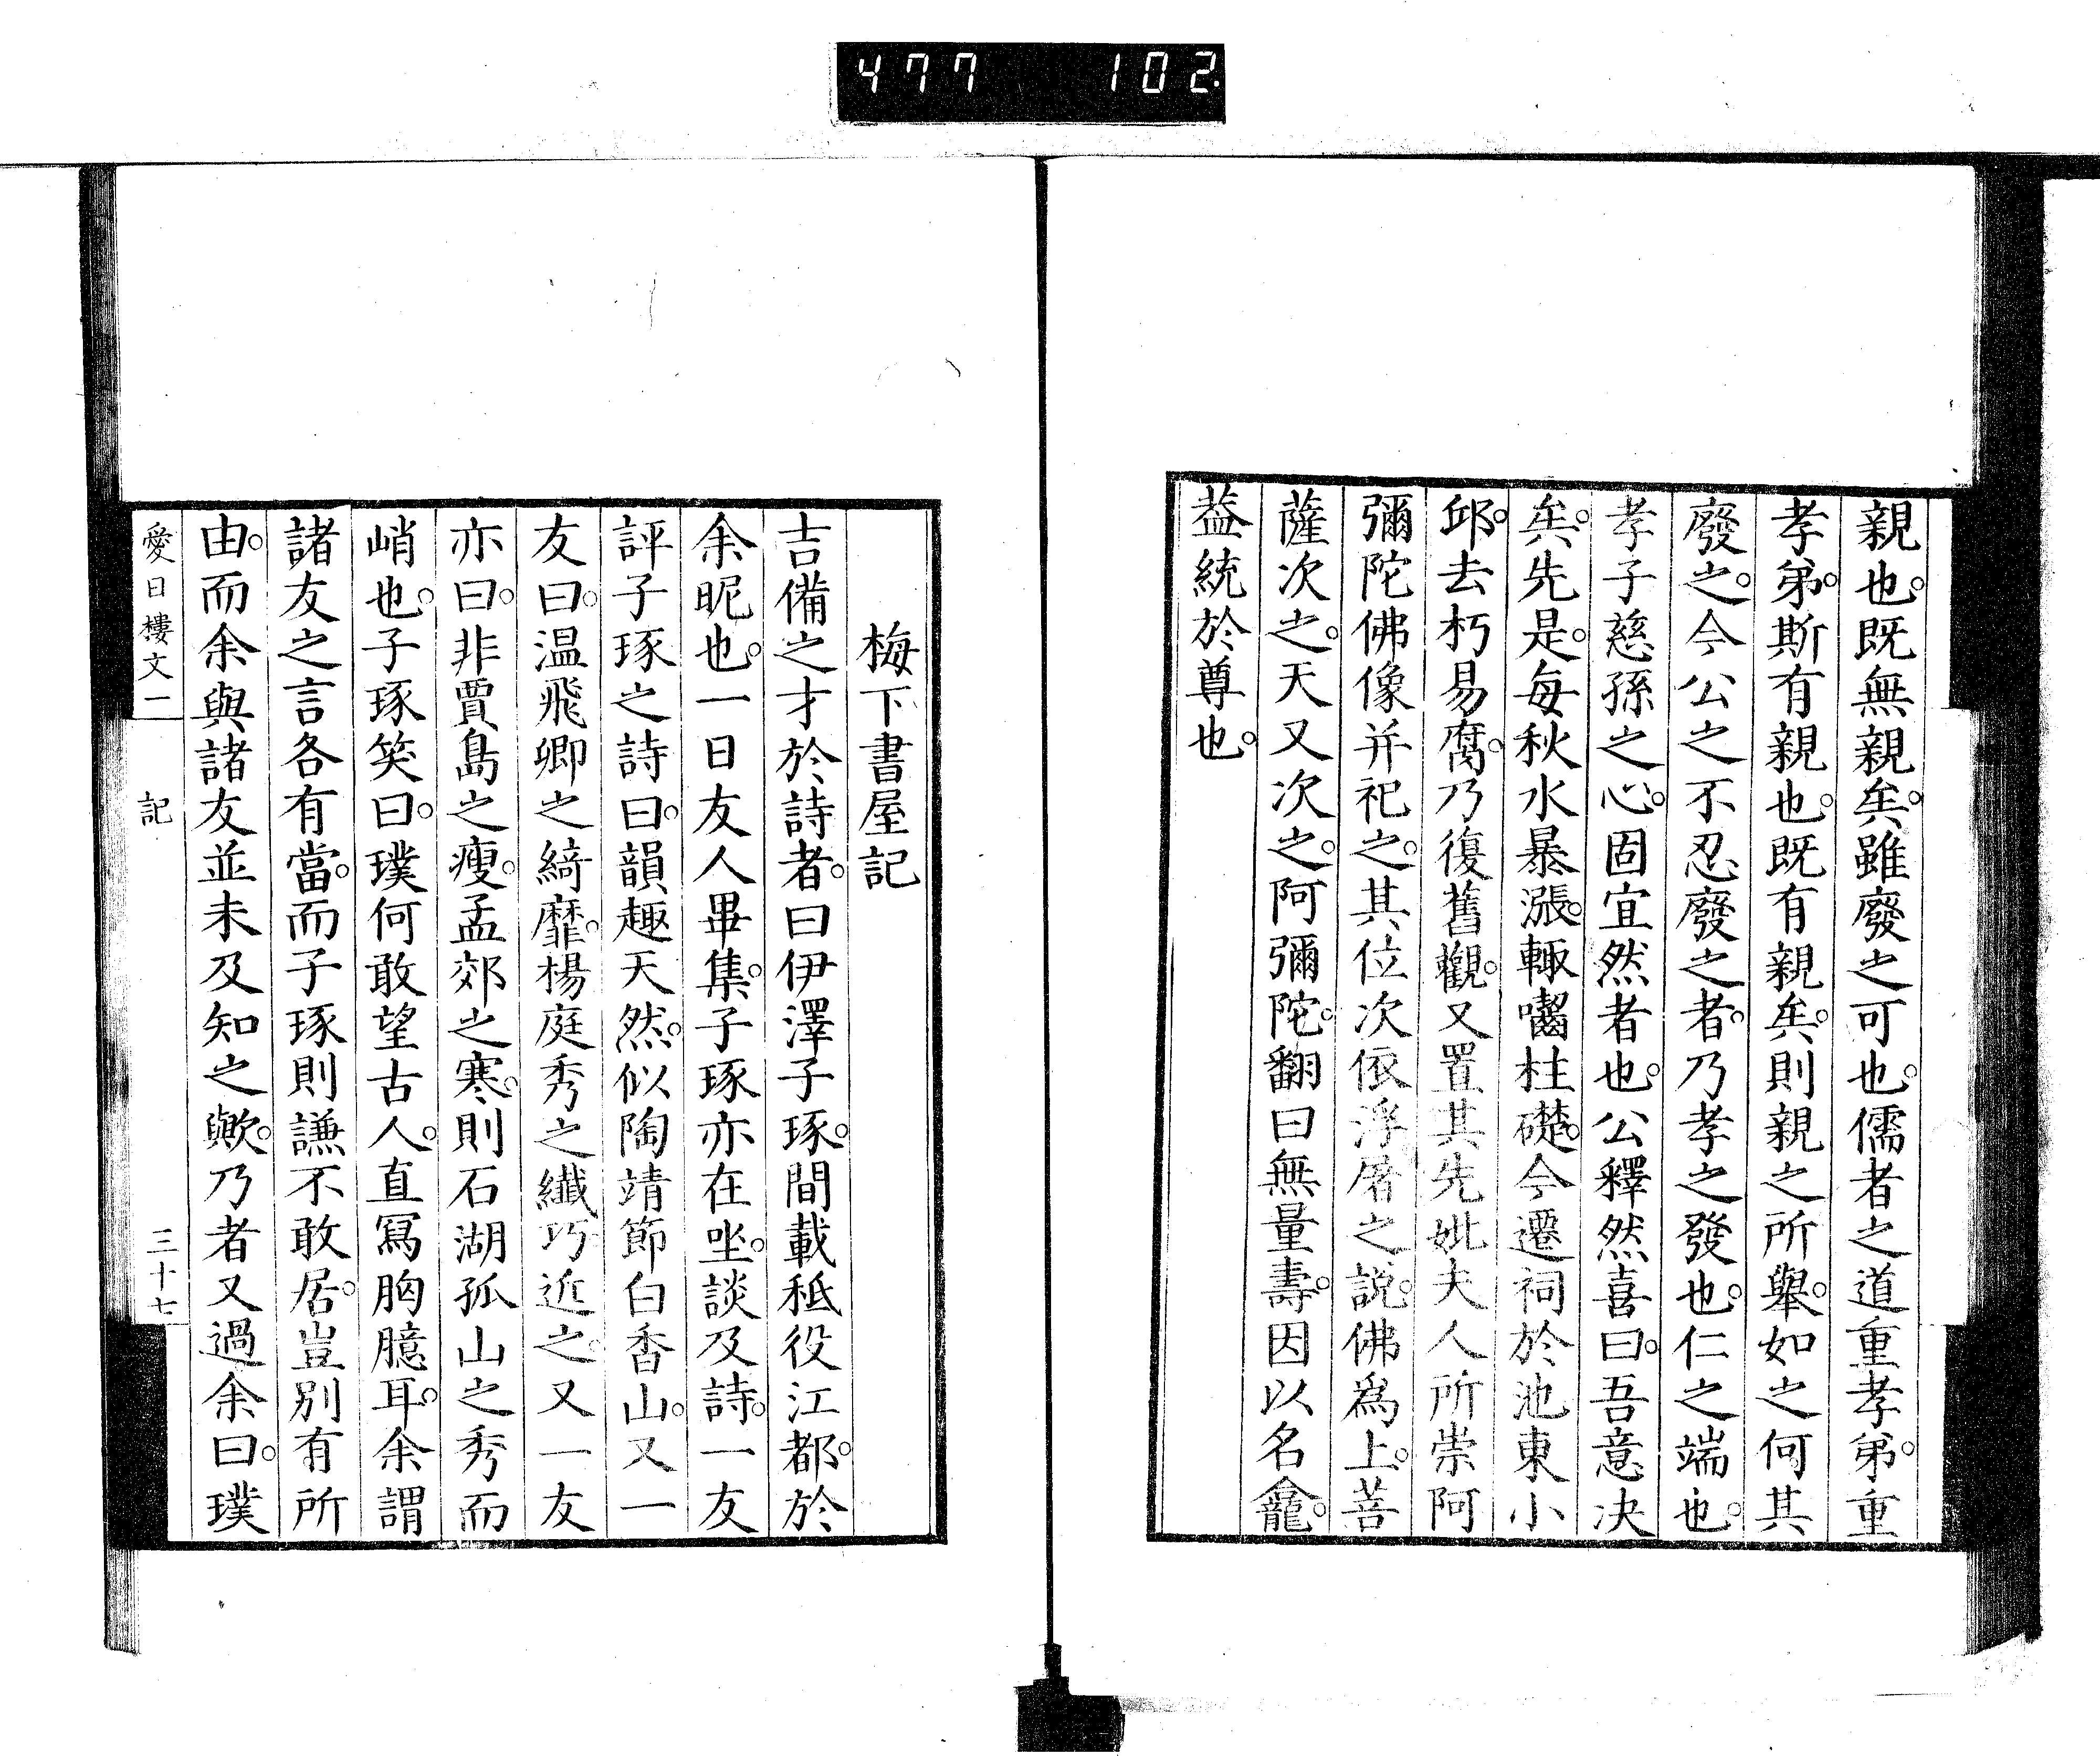 477 102
親也。既無親矣。雖廢之可也。儒者之道重孝弟。重
孝弟。斯有親也。既有親矣。則親之所舉。如之何其
廢之。今公之不忍廢之者。乃孝之發也。仁之端也。
孝子慈孫之心。固宜然者也。公釋然喜曰。吾意決
矣。先是。每秋水暴漲。輙囓柱礎。今遷祠於池東小
邱。去朽易腐。乃復舊觀。又置其先妣夫人所崇阿
彌陀佛像并祀之。其位次依浮屠之說。佛爲上。菩
薩次之。天又次之。阿彌陀。翻曰無量壽。因以名龕。
葢統於尊也。
梅下書屋記
吉備之才於詩者。曰伊澤子琢。間載秪役江都。於
余昵也。一日友人畢集。子琢亦在坐。談及詩。一友
評子琢之詩曰。韻趣天然。似陶靖節白香山。又一
友曰。温飛卿之綺靡。楊庭秀之纖巧近之。又一友
亦曰。非賈島之瘦。孟郊之寒。則石湖孤山之秀而
峭也。子琢笑曰。璞何敢望古人。直寫胸臆耳。余謂
諸友之言各有當。而子琢則謙不敢居。豈別有所
由。而余與諸友並未及知之歟。乃者又過余曰。璞
愛日樓文一 記 三十七